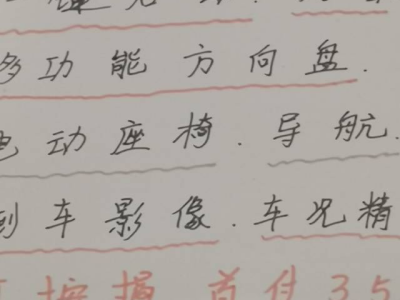 多功能方向盘.
电动座椅.导航.
到车影像.车况精
按揭 首付35